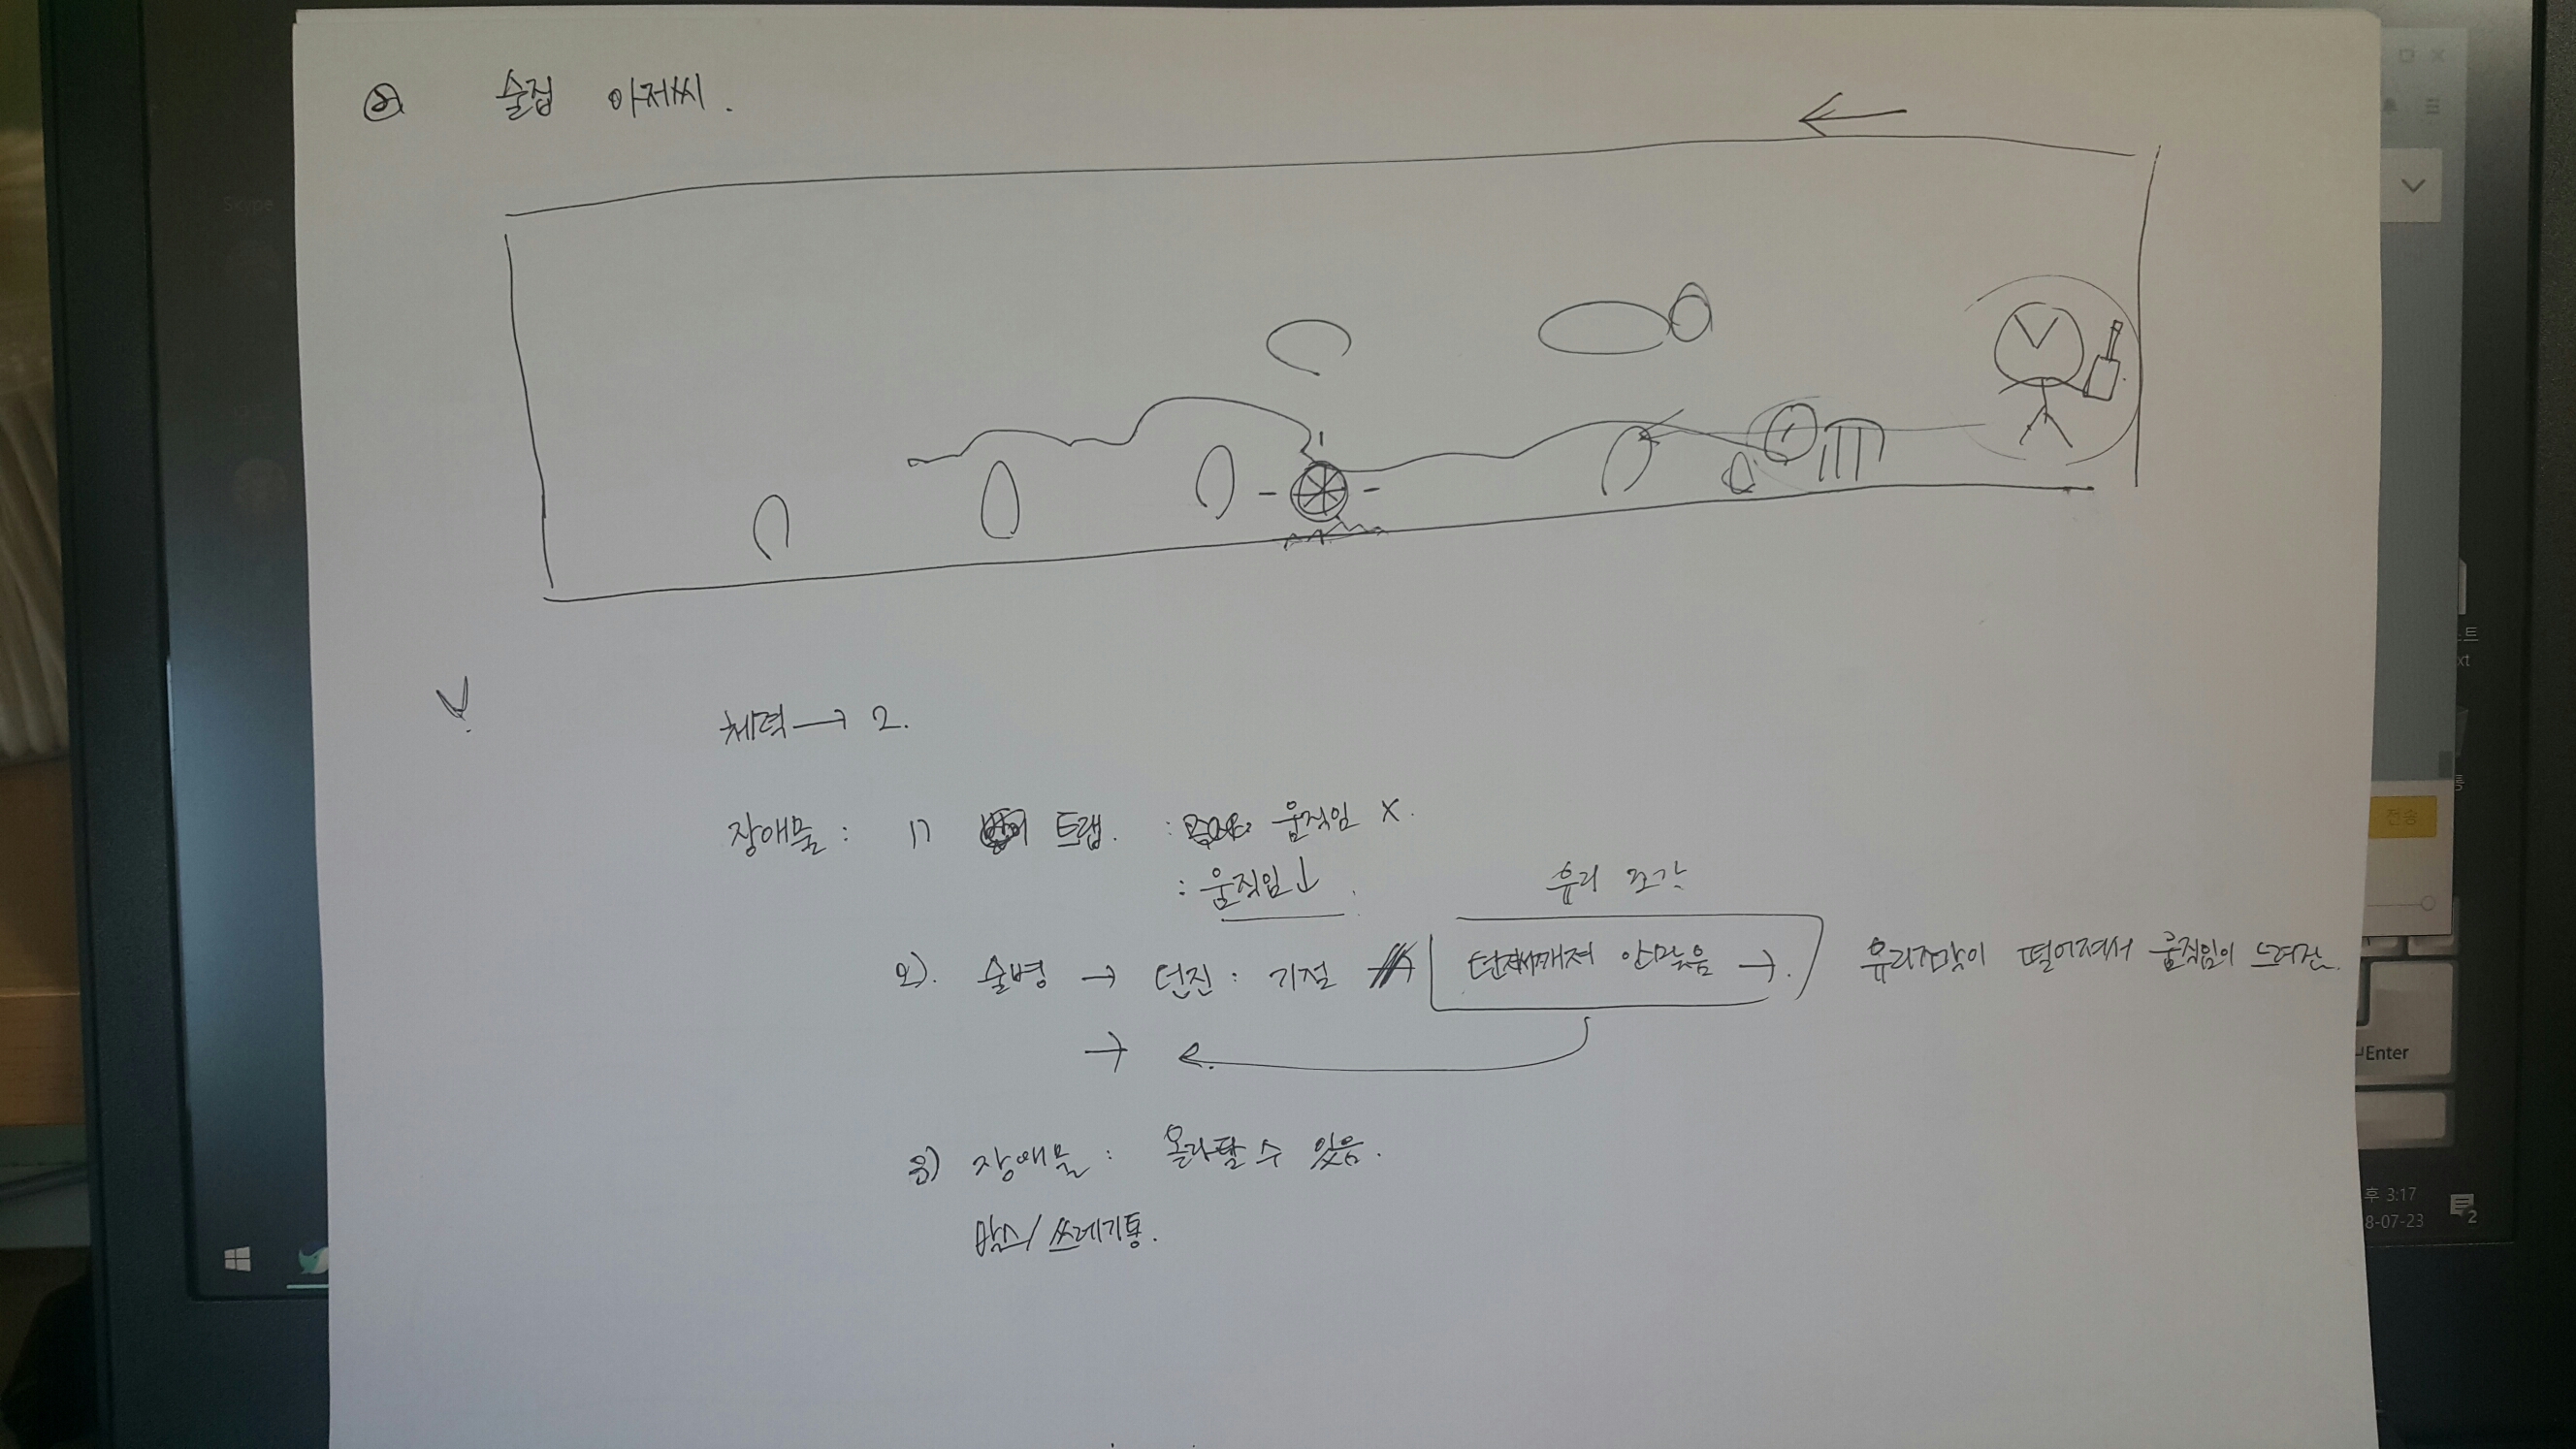 ② 술집 아저씨.
체력 → 2.
장애물 : 1) 트랩. : 움직임 X.
: 움직임↓.
유리 조각
2). 술병 → 던진 : 기절 안맞음 →. 유리조각이 떨어져서 움직임이 느려진
→ ←
3) 장애물 : 올라탈 수 있음.
박스/쓰레기통.
Skype
전송
Enter
후 3:17
8-07-23
2
xt